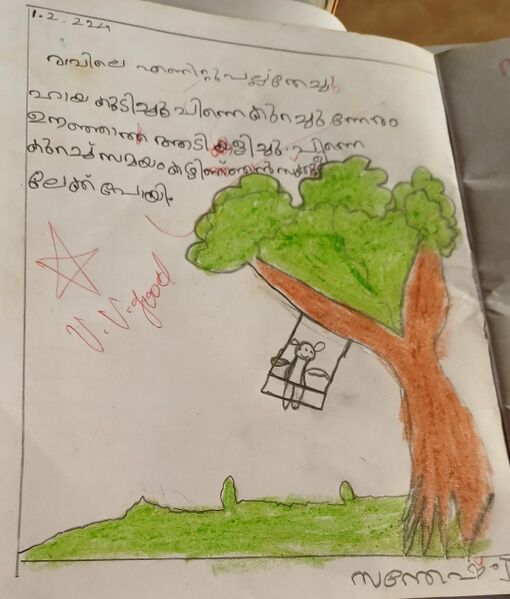 1.2.224
രാവിലെ എണിറ്റു പല്ല് തേച്ചു
ചായ കുടിച്ചു പിന്നെ കുറച്ചു നേരം
ഊഞ്ഞാൽ ആടി കളിച്ചു. പിന്നെ
കുറച്ച് സമയം കഴിഞ്ഞ് ഞൻ സ്കൂളി
ലേക്ക് പോയി.
v.v.good
സന്തേഷ്.